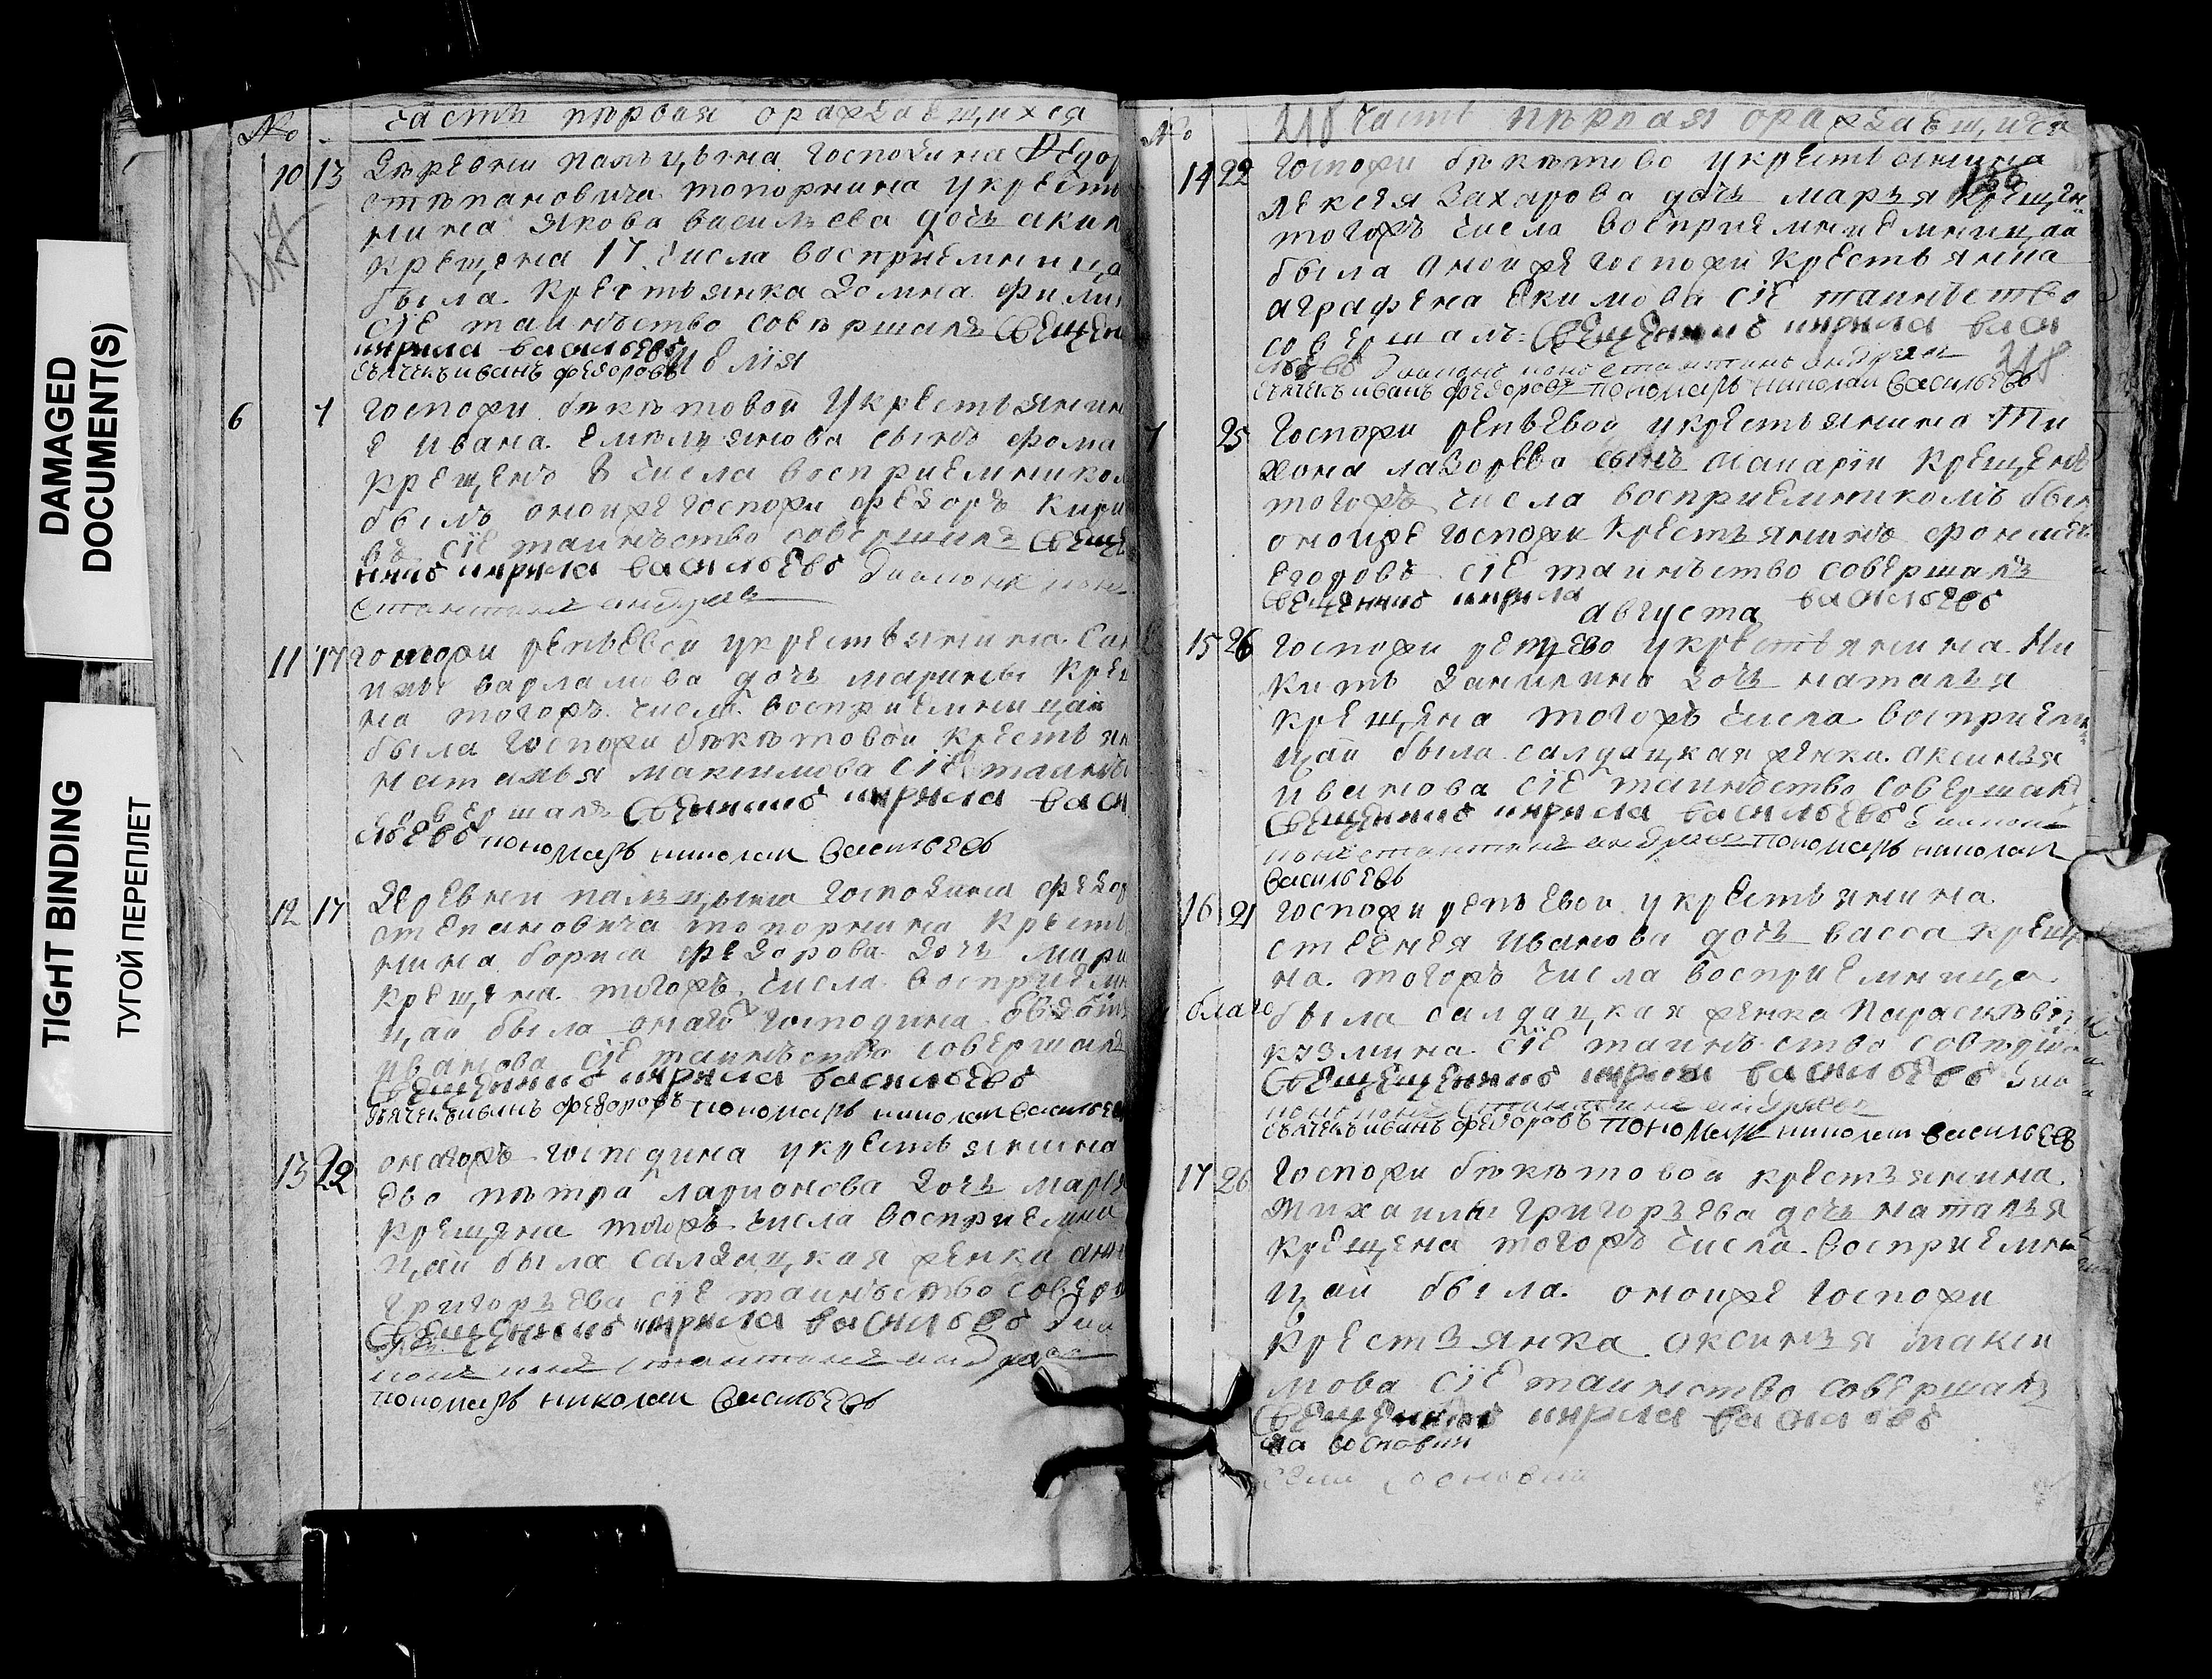 DAMAGED
DOCUMENT(S)
TIGHT BINDING
ТУГОЙ ПЕРЕПЛЕТ
№ часть первая ораждаещихся
10 13 Деревни пальцына Господина Федор
степановича топорнина укресть
нина якова васильева дочь акил
крещена 17 числа восприемница
была крестьянка домна фили
сіе таинъство совершалъ Свещен
кирила васильевъ
дьячекъ иванъ федоровъ июлия
6 7 Госпожи бекетовой укрестьянин
е ивана емельянова сынъ фома
крещенъ 8 числа восприемником
былъ оноиже госпожи федоръ кири
въ сіе таинъство совершилъ Свеще
нникъ кирила васильевъ диаконъ конс
стантинъ андреевъ
11 17 госпожи репьевой укрестьянина
варламова дочь марина креще
на тогожъ числа восприемницаи
была Госпожи бекетовой крестьян
наталья максимова сіе таинъс
совершалъ Свещенникъ кирила васи
льевъ пономарь николаи васильевъ
12 17 Деревни пальцына господина федор
степановича топорнина кресть
нина бориса федорова дочь мари
крещена тогожъ числа восприемни
цаи была онаго господина
иванова сіе таинъство совершалъ
Свещенникъ кирила васильевъ
дьячекъ иванъ федоровъ пономарь николаи васильевъ
13 22 онагожъ господина укрестьянина
ево петра ларионова дочь марья
крещена тогожъ числа восприемни
цаи была салдацкая женка анн
григорьева сіе таинъство соверш
Свещенникъ кирила васильевъ диа
конъ константинъ андреевъ
пономарь николаи васильевъ
№ 218 часть первая ораждаещихся
14 22 госпожи бекетево укрестьянина
155
лексея захарова дочь марья крещен
тогожъ числа восприемниемницаи
была оноиже госпожи крестьянка
аграфена екимова сіе таинъство
совершалъ Свещенникъ кирила васи
льевъ диаконъ константинъ андреевъ 218
дьячекъ иванъ федоровъ пономарь николаи васильевъ
7 25 Госпожи репьевои укрестьянина Ти
хона лазорева сынъ макарiи крещенъ
тогожъ числа восприемникомъ был
оноиже госпожи крестьянинъ
егоровъ сіе таинъство совершалъ
Свещенникъ кирила васильевъ
августа
15 26 госпожи репьево укрестьянина Ни
киты данилина дочь наталья
крещена тогожъ числа восприемни
цаи была салдацкая женка аксинья
иванова сіе таинъство совершалъ
Свещенникъ кирила васильевъ диаконъ
константинъ андреевъ пономарь николаи
васильевъ
16 21 госпожи репьевои укрестьянина
иванова дочь васса креще
на тогожъ числа восприемница
благо была салдацкая женка параскевия
кузмина сіе таинъство
Свещещенникъ кирила васильевъ диа
конъ константинъ андреевъ
дьячекъ иванъ федоровъ пономарь николаи васильевъ
17 26 Госпожи бекетовои крестьянина
михаилы григорьева дочь наталья
крещена тогожъ числа восприемни
цаи была оноиже госпожи
крестьянка оксинья макси
мова сіе таинство совершалъ
Свещенникъ кирила васильевъ